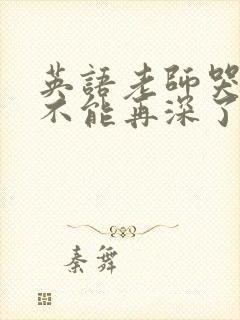 英語老師哭
不能再深了
秦舞